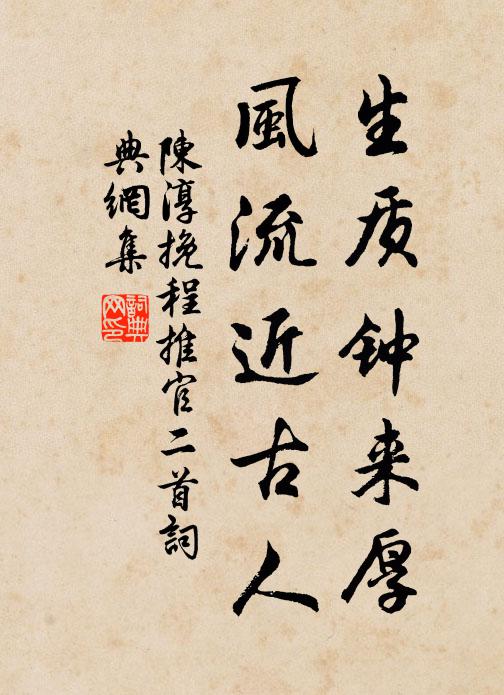 生质钟来厚
風流近古人
陳淳挽程推官二首詞
典網集
詞典
网印